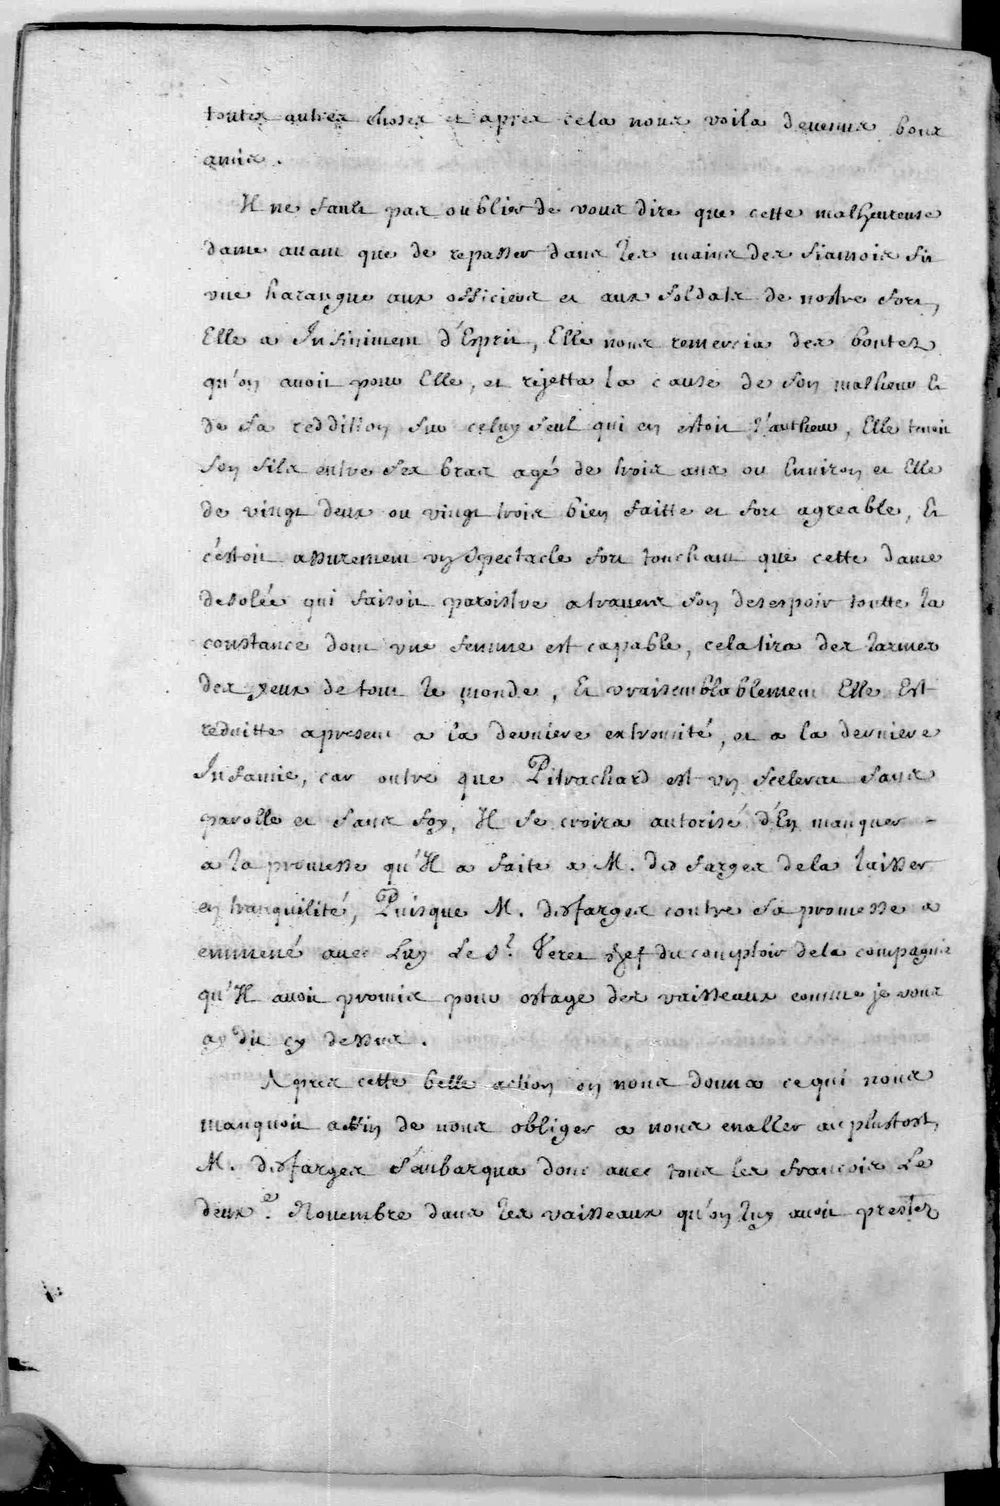 toutes autres choses et apres cela nous voila devenus bons
amis.
Il ne faut pas oublier de vous dire que cette malheureuse
dame avant que de repasser dans les mains des siamois fit
une harangue aux officiers et aux soldats de nostre fort,
Elle a Infiniment d'Esprit, Elle nous remercia des bontez
qu'on avoit pour Elle, et rejetta la cause de son malheur Et
de sa reddition sur celuy seul qui en estoit l'autheur, Elle tenoit
son fils entre ses bras agé de trois ans ou Environ et Elle
de vingt deux ou vingt trois bien faitte et fort agreable, Et
c'estoit assurement un spectacle fort touchant que cette dame
desolée qui faisoit paroistre a travers son desespoir toutte la
constance dont une femme est capable, cela tira des larmes
des yeux de tout le monde, Et vraisemblablement Elle Est
reduitte apresent a la derniere extremité, et a la derniere
Infamie, car outre que Pitrachard est un scelerat sans
parolle et sans foy, Il se croira autorisé d'En manquer
a la promesse qu'Il a faite a M. des farges de la laisser
en tranquilité, Puisque M. desfarges contre sa promesse a
emmené avec Luy Le Sr. Veret chef du comptoir de la compagnie
qu'Il avoit promis pour ostage des vaisseaux comme je vous
ay dit cy dessus.
Apres cette belle action on nous donna ce qui nous
manquoit affin de nous obliger a nous en aller au plustost,
M. desfarges s'embarqua donc avec tous les francois Le
deuxe. Novembre dans les vaisseaux qu'on luy avoit prestez